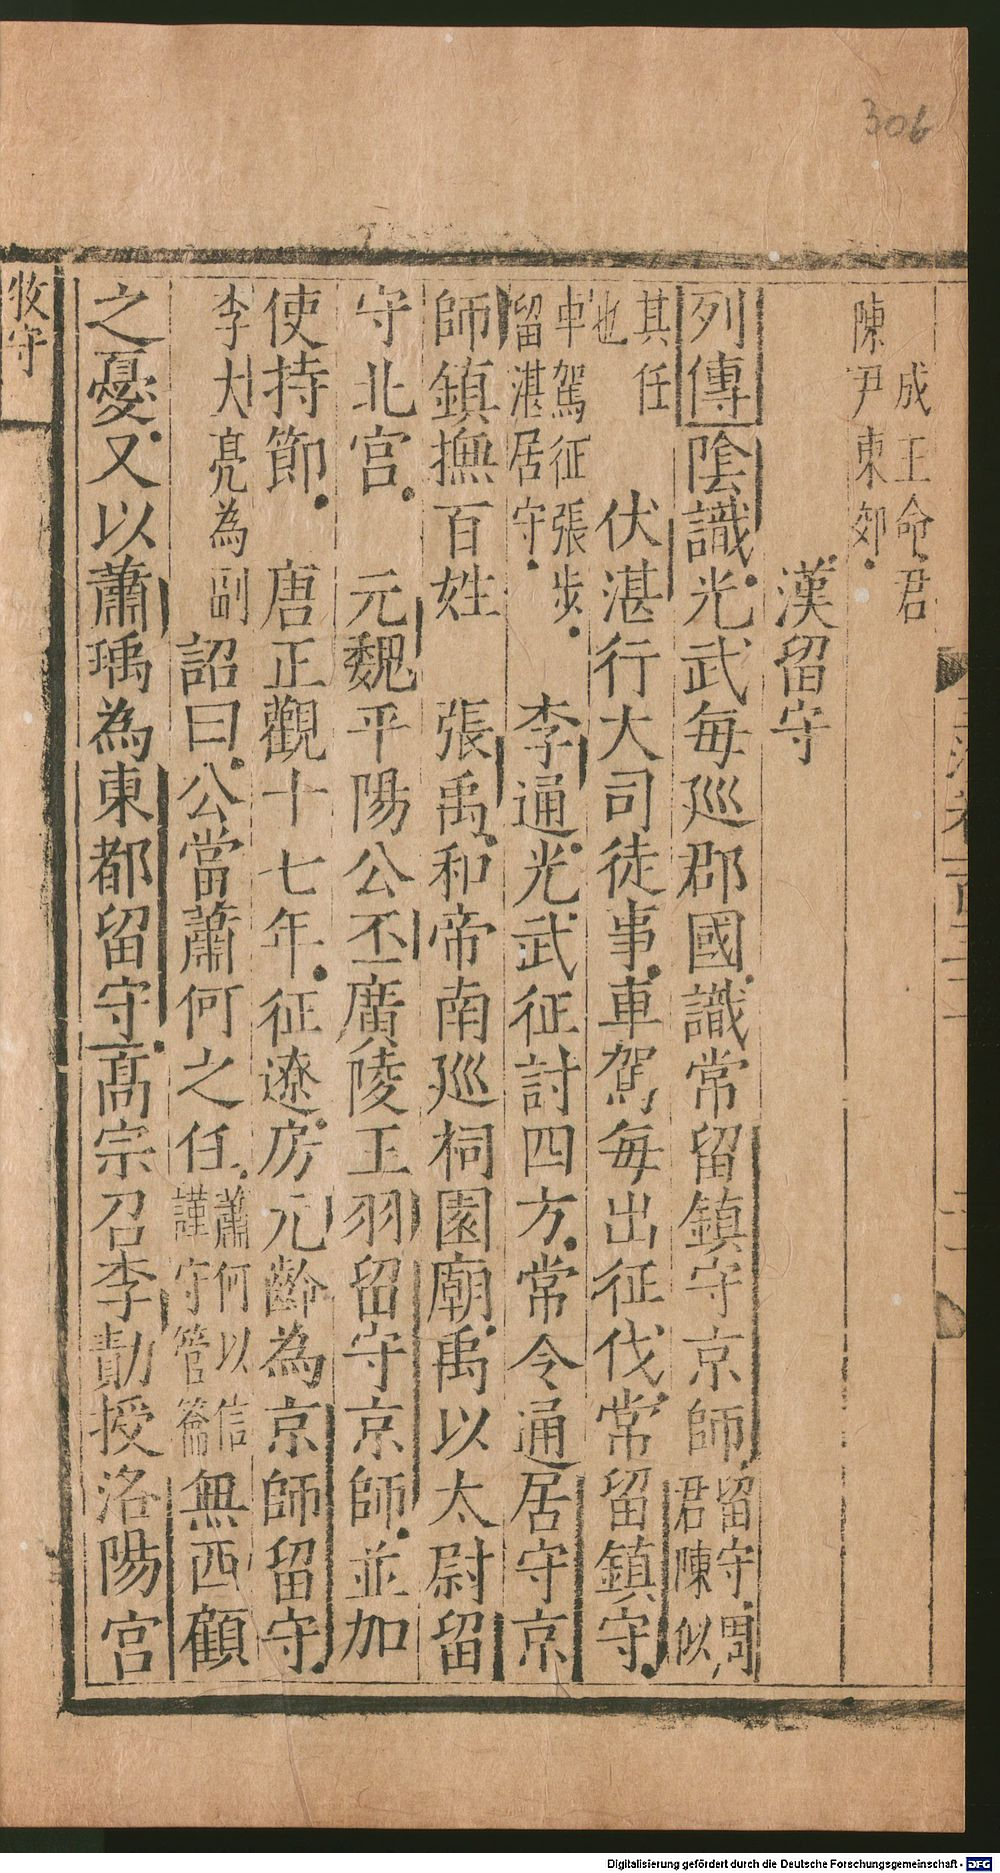 306
成王命君
陳尹東郊
漢留守
列傳陰識光武每廵郡國識常留鎮守京師留守周
君陳似
其任
也
伏湛行大司徒事車駕每出征伐常留鎮守
車駕征張步
留湛居守
李通光武征討四方常令通居守京
師鎮撫百姓　張禹和帝南廵祠園廟禹以太尉留
守北宮　元魏平陽公丕廣陵王羽留守京師並加
使持節　唐正觀十七年征遼房元齡為京師留守
李大亮為副
詔曰公當蕭何之任
蕭何以信
謹守管籥
無西顧
之憂又以蕭瑀為東都留守高宗召李勣授洛陽宮
牧守
Digitalisierung gefördert durch die Deutsche Forschungsgemeinschaft - DFG